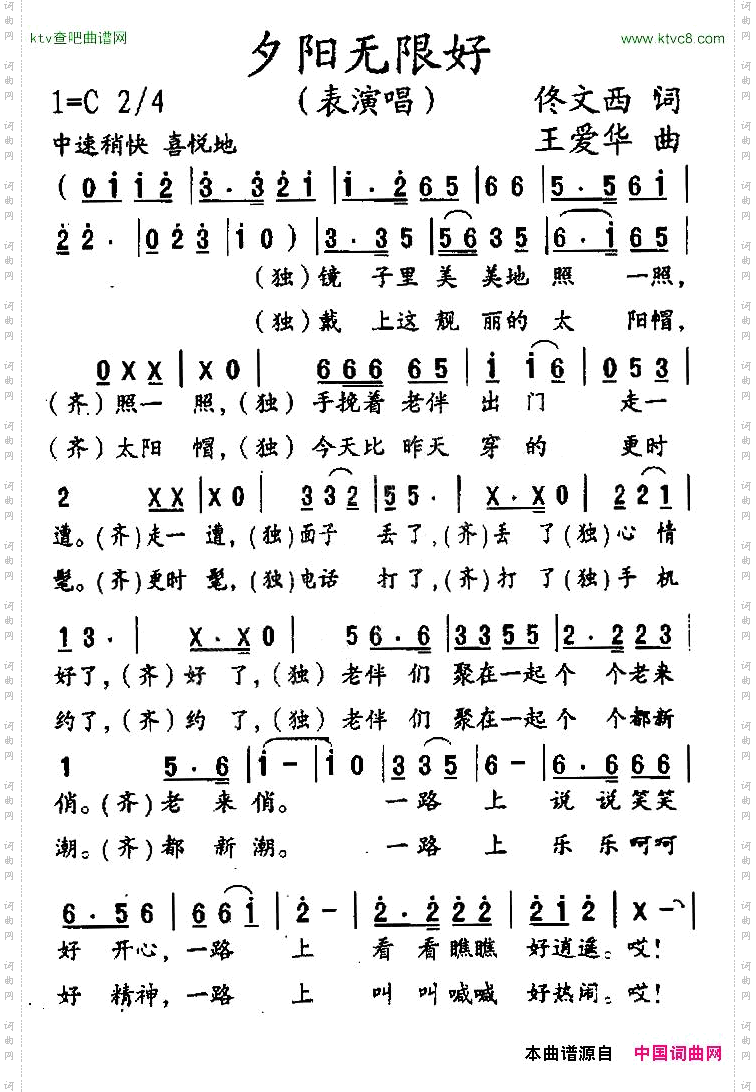 ktv查吧曲谱网
www.ktvc8.com
夕阳无限好
1=C 2/4
(表演唱)
佟文西 词
中速稍快 喜悦地
王爱华 曲
(0 1 1 2 | 3 · 3 2 1 | 1 · 2 6 5 | 6 6 | 5 · 5 6 1 |
2 2 · | 0 2 3 | 1 0) | 3 · 3 5 | 5 6 3 5 | 6 · 1 6 5 |
(独)镜 子里 美 美地 照 一照,
(独)戴 上这 靓 丽的 太 阳帽,
0 X X | X 0 | 6 6 6 6 5 | i i 6 | 0 5 3 |
(齐)照一 照,(独)手挽着 老伴 出 门 走一
(齐)太阳 帽,(独)今天比 昨天 穿 的 更时
2 X X | X 0 | 3 3 2 | 5 5 · | X · X 0 | 2 2 1 |
遭。(齐)走一 遭,(独)面子 丢了,(齐)丢 了(独)心 情
髦。(齐)更时 髦,(独)电话 打了,(齐)打 了(独)手 机
1 3 · | X · X 0 | 5 6 · 6 | 3 3 5 5 | 2 · 2 2 3 |
好了,(齐)好 了,(独)老伴 们 聚在一起 个 个老来
约了,(齐)约 了,(独)老伴 们 聚在一起 个 个都新
1 5 · 6 | i - | i 0 | 3 3 5 | 6 - | 6 · 6 6 6 |
俏。(齐)老 来 俏。 一路 上 说 说笑笑
潮。(齐)都 新 潮。 一路 上 乐 乐呵呵
6 · 5 6 | 6 6 i | 2 - | 2 · 2 2 2 | 2 1 2 | X - |
好 开心,一路 上 看 看瞧瞧 好逍遥。哎!
好 精神,一路 上 叫 叫喊喊 好热闹。哎!
本曲谱源自 中国词曲网